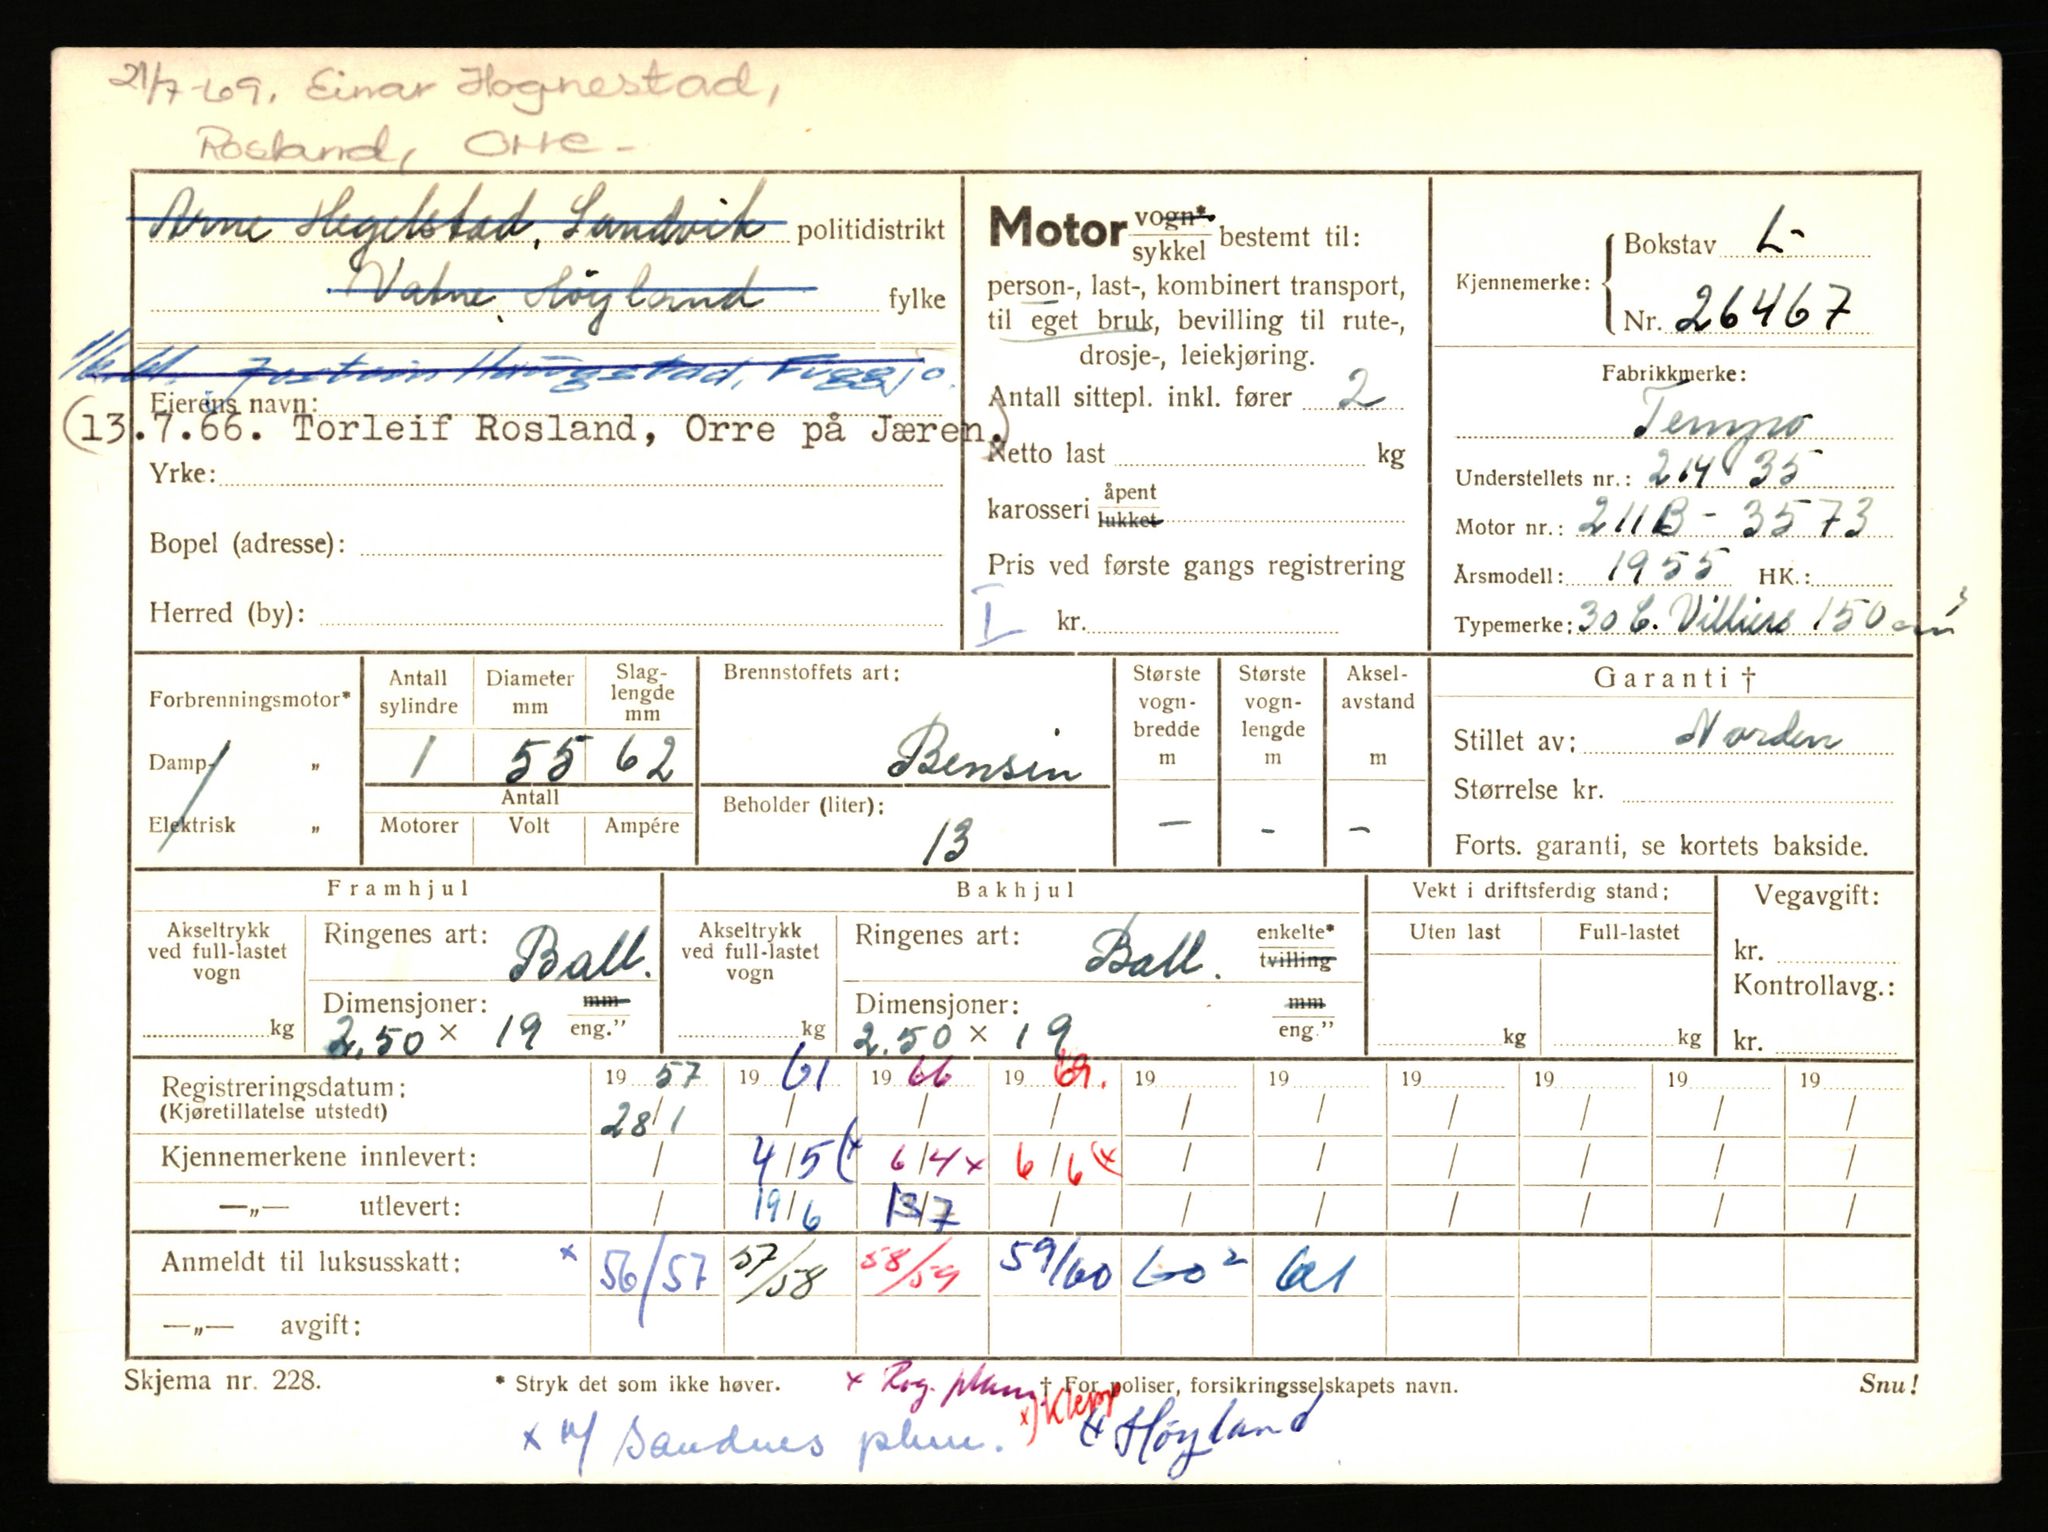 21/7-69. Einar Hognestad,
Rosland, Orre -
Arne Hegelstad, Sandvik politidistrikt
Vatne, Høyland fylke
Jostein Haugstad, Figgjo.
Eierens navn:
(13.7.66. Torleif Rosland, Orre på Jæren.)
Yrke:
Bopel (adresse):
Herred (by):
Motor vogn* sykkel bestemt til:
person-, last-, kombinert transport,
til eget bruk, bevilling til rute-,
drosje-, leiekjøring.
Antall sittepl. inkl. fører 2
Netto last kg
karosseri åpent lukket
Pris ved første gangs registrering
I kr.
Kjennemerke: Bokstav L-
Nr. 26467
Fabrikkmerke:
Tempo
Understellets nr.: 214 35
Motor nr.: 211B - 3573
Årsmodell: 1955 HK.:
Typemerke: 30 C. Villiers 150 cm³
Forbrenningsmotor*
Damp- „
Elektrisk „
Antall sylindre Diameter mm Slag-lengde mm
1 55 62
Antall
Motorer Volt Ampére
Brennstoffets art:
Bensin
Beholder (liter):
13
Største vogn-bredde m Største vogn-lengde m Aksel-avstand m
— - —
Garanti †
Stillet av: Norden
Størrelse kr.
Forts. garanti, se kortets bakside.
Framhjul
Akseltrykk ved full-lastet vogn kg
Ringenes art: Ball.
Dimensjoner: mm
2.50 × 19 eng.”
Bakhjul
Akseltrykk ved full-lastet vogn kg
Ringenes art: Ball. enkelte* tvilling
Dimensjoner: mm
2.50 × 19 eng.”
Vekt i driftsferdig stand:
Uten last Full-lastet
kg kg
Vegavgift:
kr.
Kontrollavg.:
kr.
Registreringsdatum: 19 57 19 61 19 66 19 69. 19 19 19 19 19 19
(Kjøretillatelse utstedt) 28/1 / / / / / / / / /
Kjennemerkene innlevert: / 4/5 (x 6/4 x 6/6 (x / / / / / /
—„— utlevert: / 19/6 13/7 / / / / / / /
Anmeldt til luksusskatt: x 56/57 57/58 58/59 59/60 60² 61
—„— avgift:
Skjema nr. 228. * Stryk det som ikke høver. x Rog. plum. † For poliser, forsikringsselskapets navn. Snu!
x) Klepp
x Sandnes plum. (x Høyland